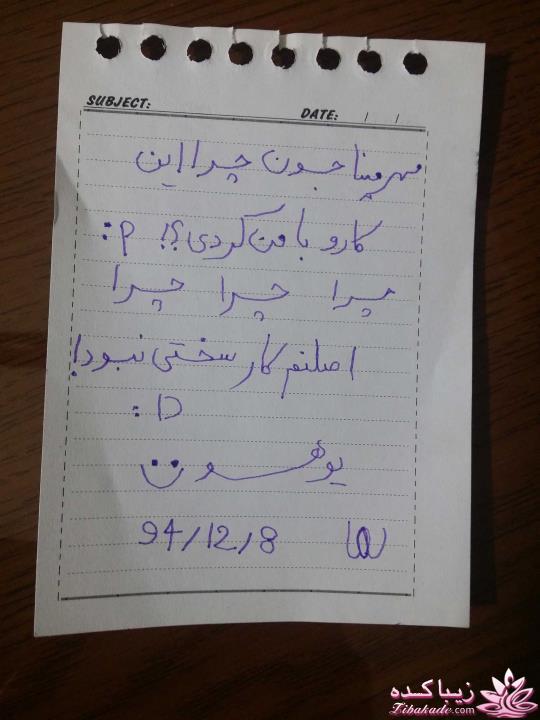 SUBJECT: DATE: / /
مهرمینا جون چرا این
کارو با من کردی؟! :P
چرا چرا چرا
اصلنم کار سختی نبود!
:D
یوهــون
94/12/8
زیباکده
Zibakade.com